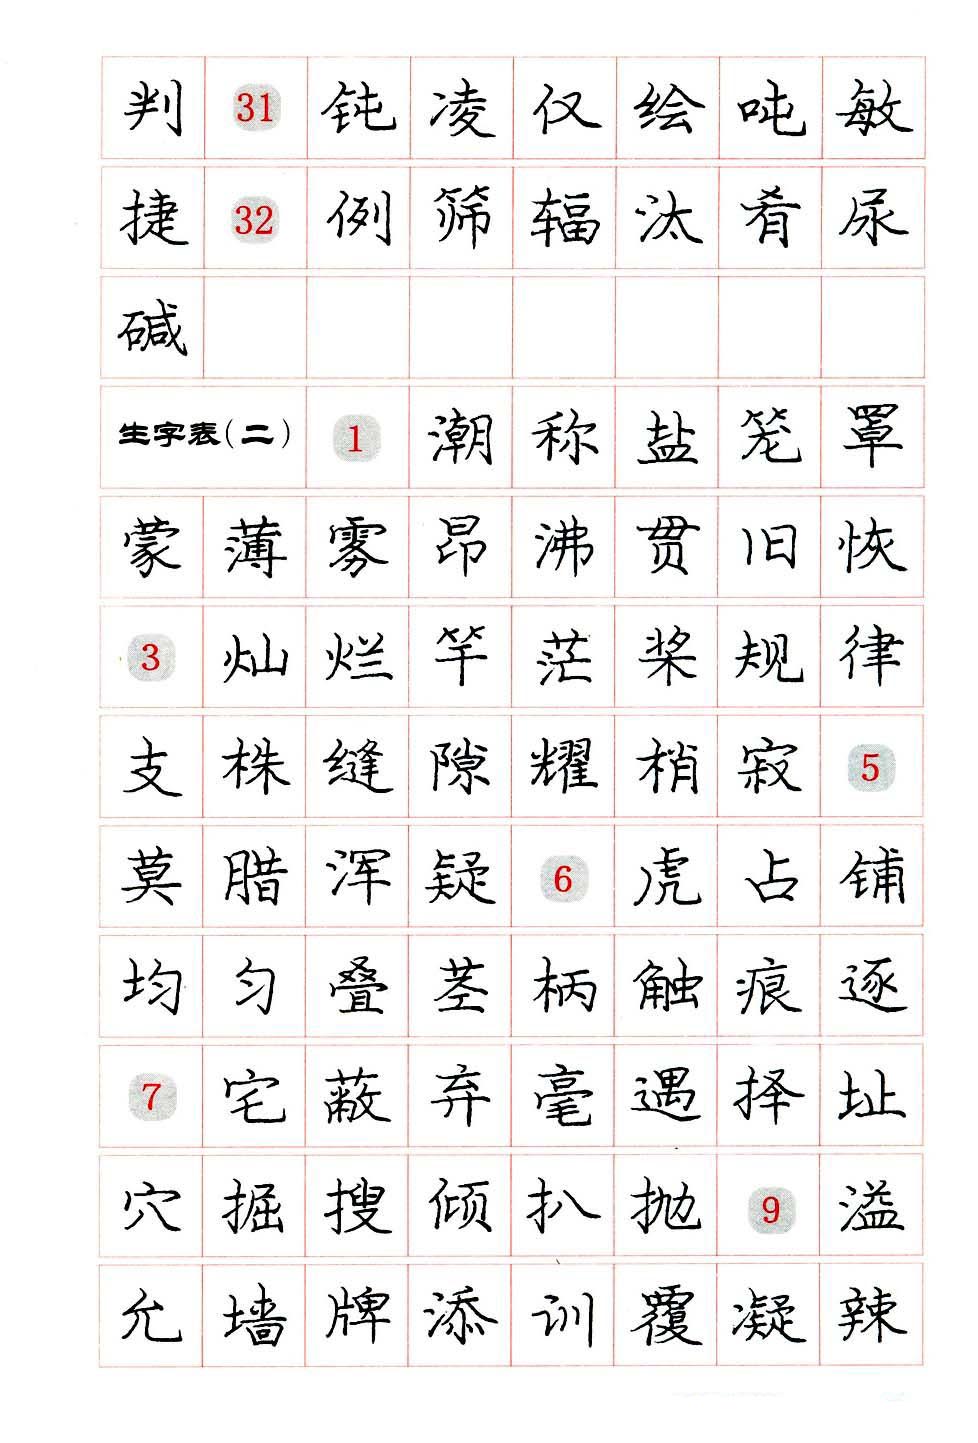 判 31 钝 凌 仅 绘 吨 敏
捷 32 例 筛 辐 汰 肴 尿
碱
生字表（二） 1 潮 称 盐 笼 罩
蒙 薄 雾 昂 沸 贯 旧 恢
3 灿 烂 竿 茫 桨 规 律
支 株 缝 隙 耀 梢 寂 5
莫 腊 浑 疑 6 虎 占 铺
均 匀 叠 茎 柄 触 痕 逐
7 宅 蔽 弃 毫 遇 择 址
穴 掘 搜 倾 扒 抛 9 溢
允 墙 牌 添 训 覆 凝 辣